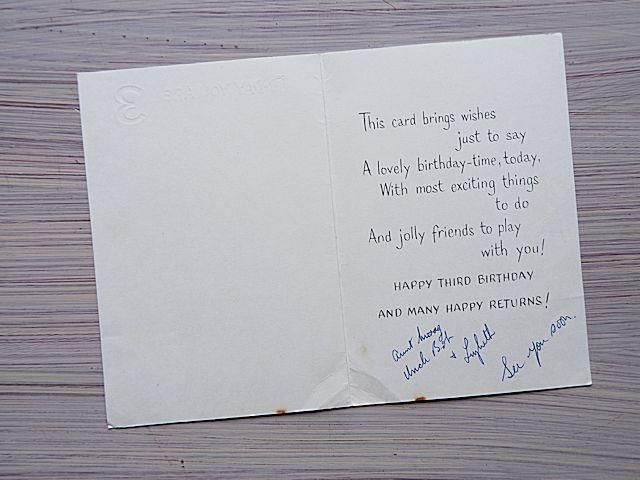 This card brings wishes
just to say
A lovely birthday-time, today,
With most exciting things
to do
And jolly friends to play
with you!
HAPPY THIRD BIRTHDAY
AND MANY HAPPY RETURNS!
Aunt
Uncle
+
See you soon.
3
TODAY YOU ARE